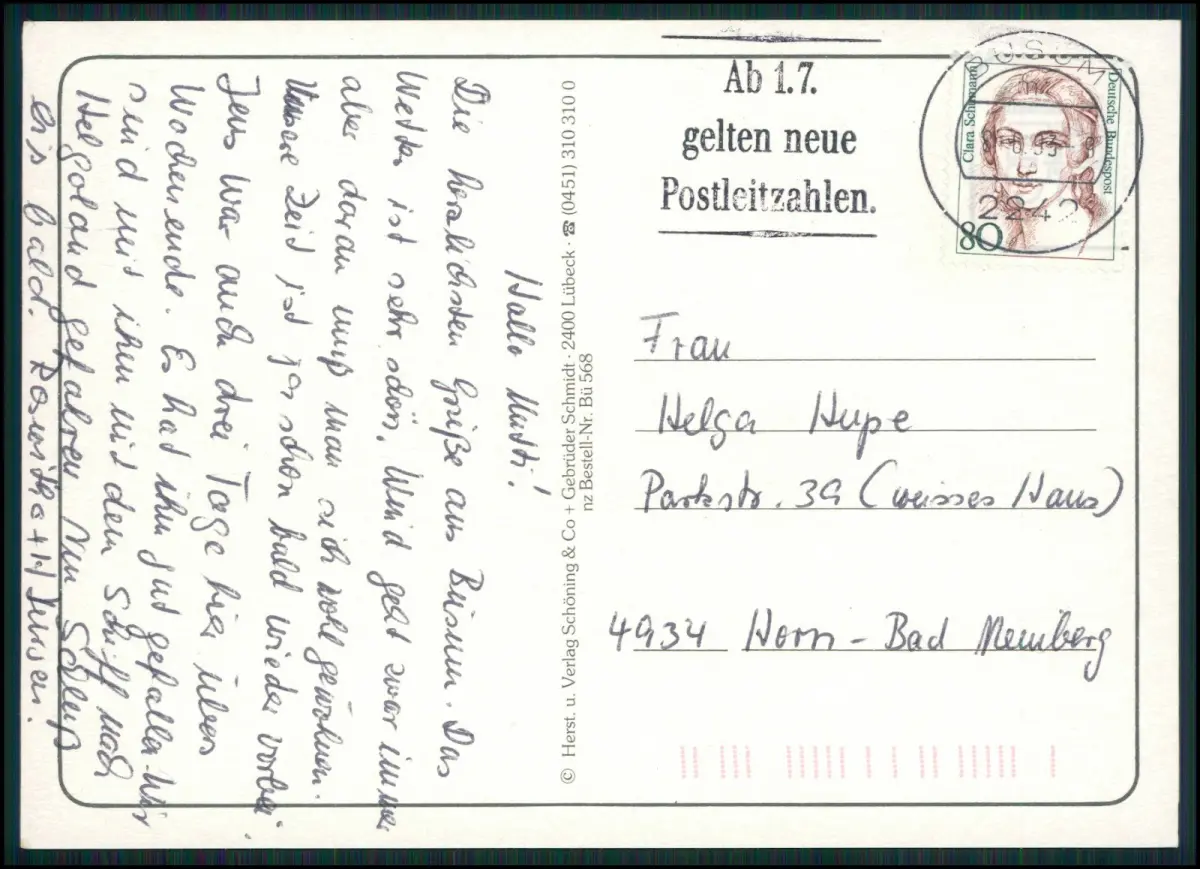 Hallo Mutti!
Die herzlichsten Grüße aus Büsum. Das
Wetter ist sehr schön, Wind geht zwar immer
aber daran muß man sich wohl gewöhnen.
Unsere Zeit ist ja schon bald wieder vorbei.
Jens war auch drei Tage hier übers
Wochenende. Es hat ihm gut gefallen. Wir
sind mit ihm mit dem Schiff nach
Helgoland gefahren. Nun Schluß
bis bald. Roswitha +
© Herst. u. Verlag Schöning & Co + Gebrüder Schmidt · 2400 Lübeck · ☎ (0451) 310 310 0
nz Bestell-Nr. Bü 568
Ab 1.7.
gelten neue
Postleitzahlen.
BÜSUM
93
2242
Clara Schumann
Deutsche Bundespost
80
Frau
Helga Hupe
Parkstr. 39 (weisses Haus)
4934 Horn-Bad Meinberg